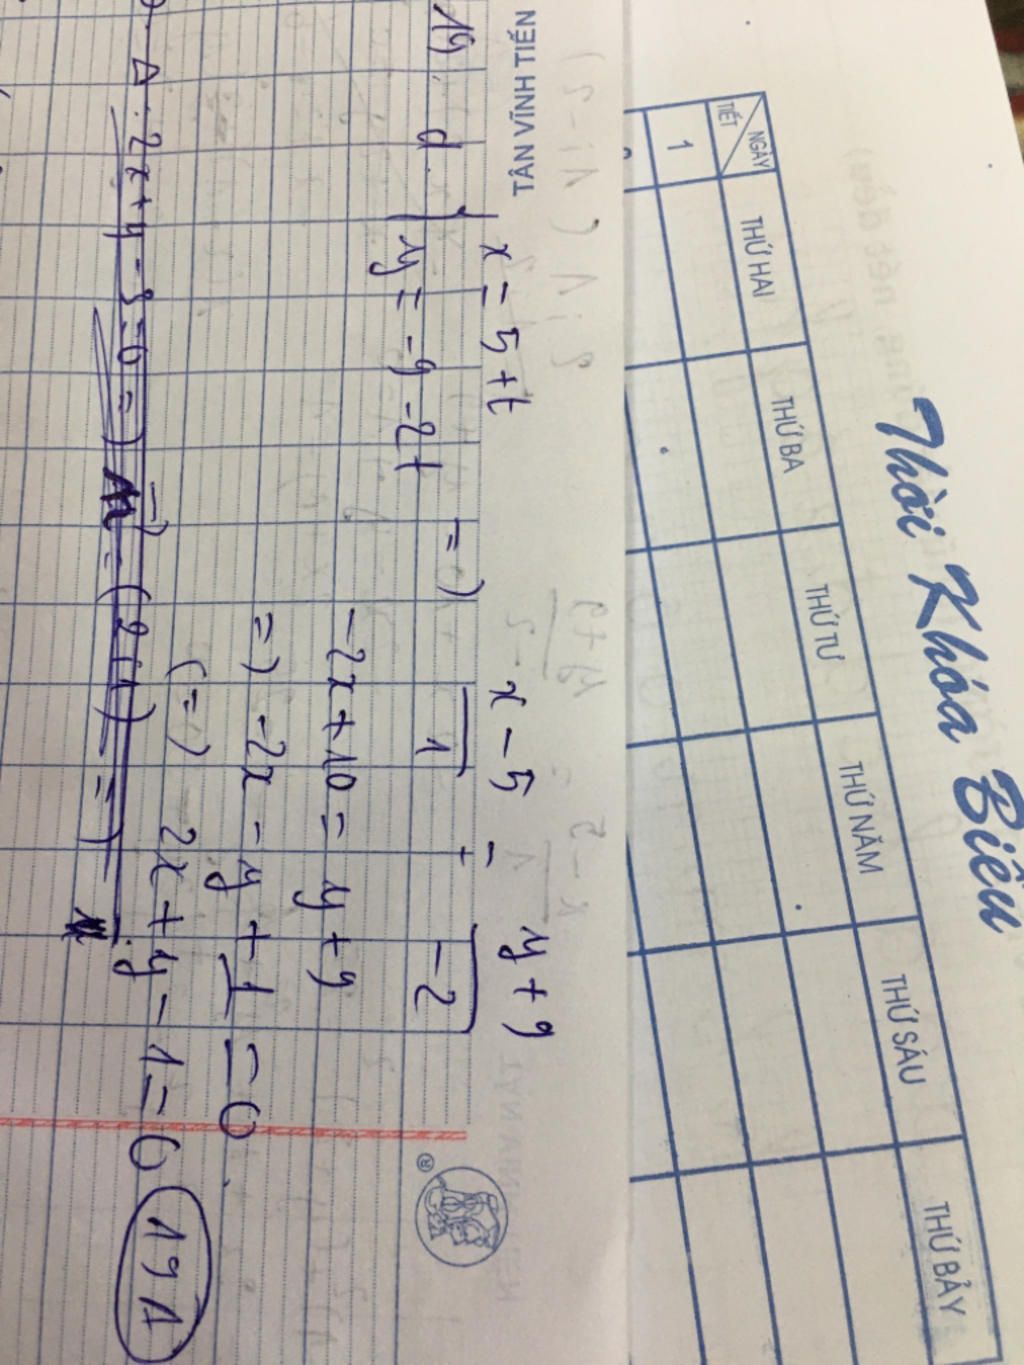 Thời Khóa Biểu
NGÀY
TIẾT
THỨ HAI
THỨ BA
THỨ TƯ
THỨ NĂM
THỨ SÁU
THỨ BẢY
1
TÂN VĨNH TIẾN
19. d { x = 5 + t
y = -9 - 2t
=) x - 5 / 1 = y + 9 / -2
-2x + 10 = y + 9
=) -2x - y + 1 = 0
(=) 2x + y - 1 = 0
19A
Δ : 2x + y - 3 = 0 =) n = (2; 1) =)
®